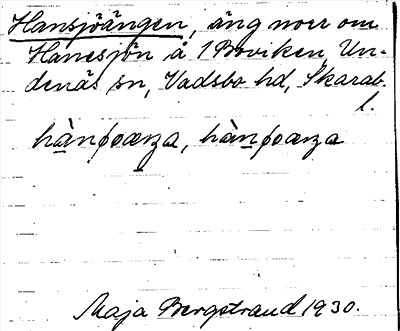 Hansjöängen, äng norr om
Hanesjön å 1 Boviken, Un-
denäs sn, Vadsbo hd, Skarab.
l.
Maja Bergstrand 1930.